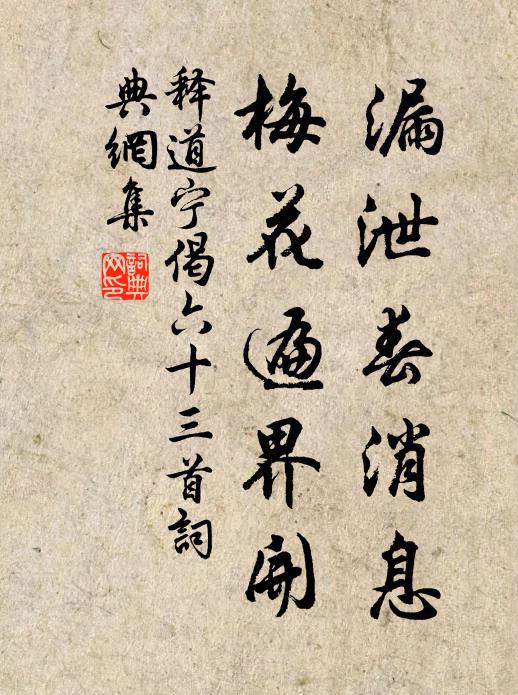 漏泄春消息
梅花遍界開
释道宁偈六十三首詞
典網集
詞典网印